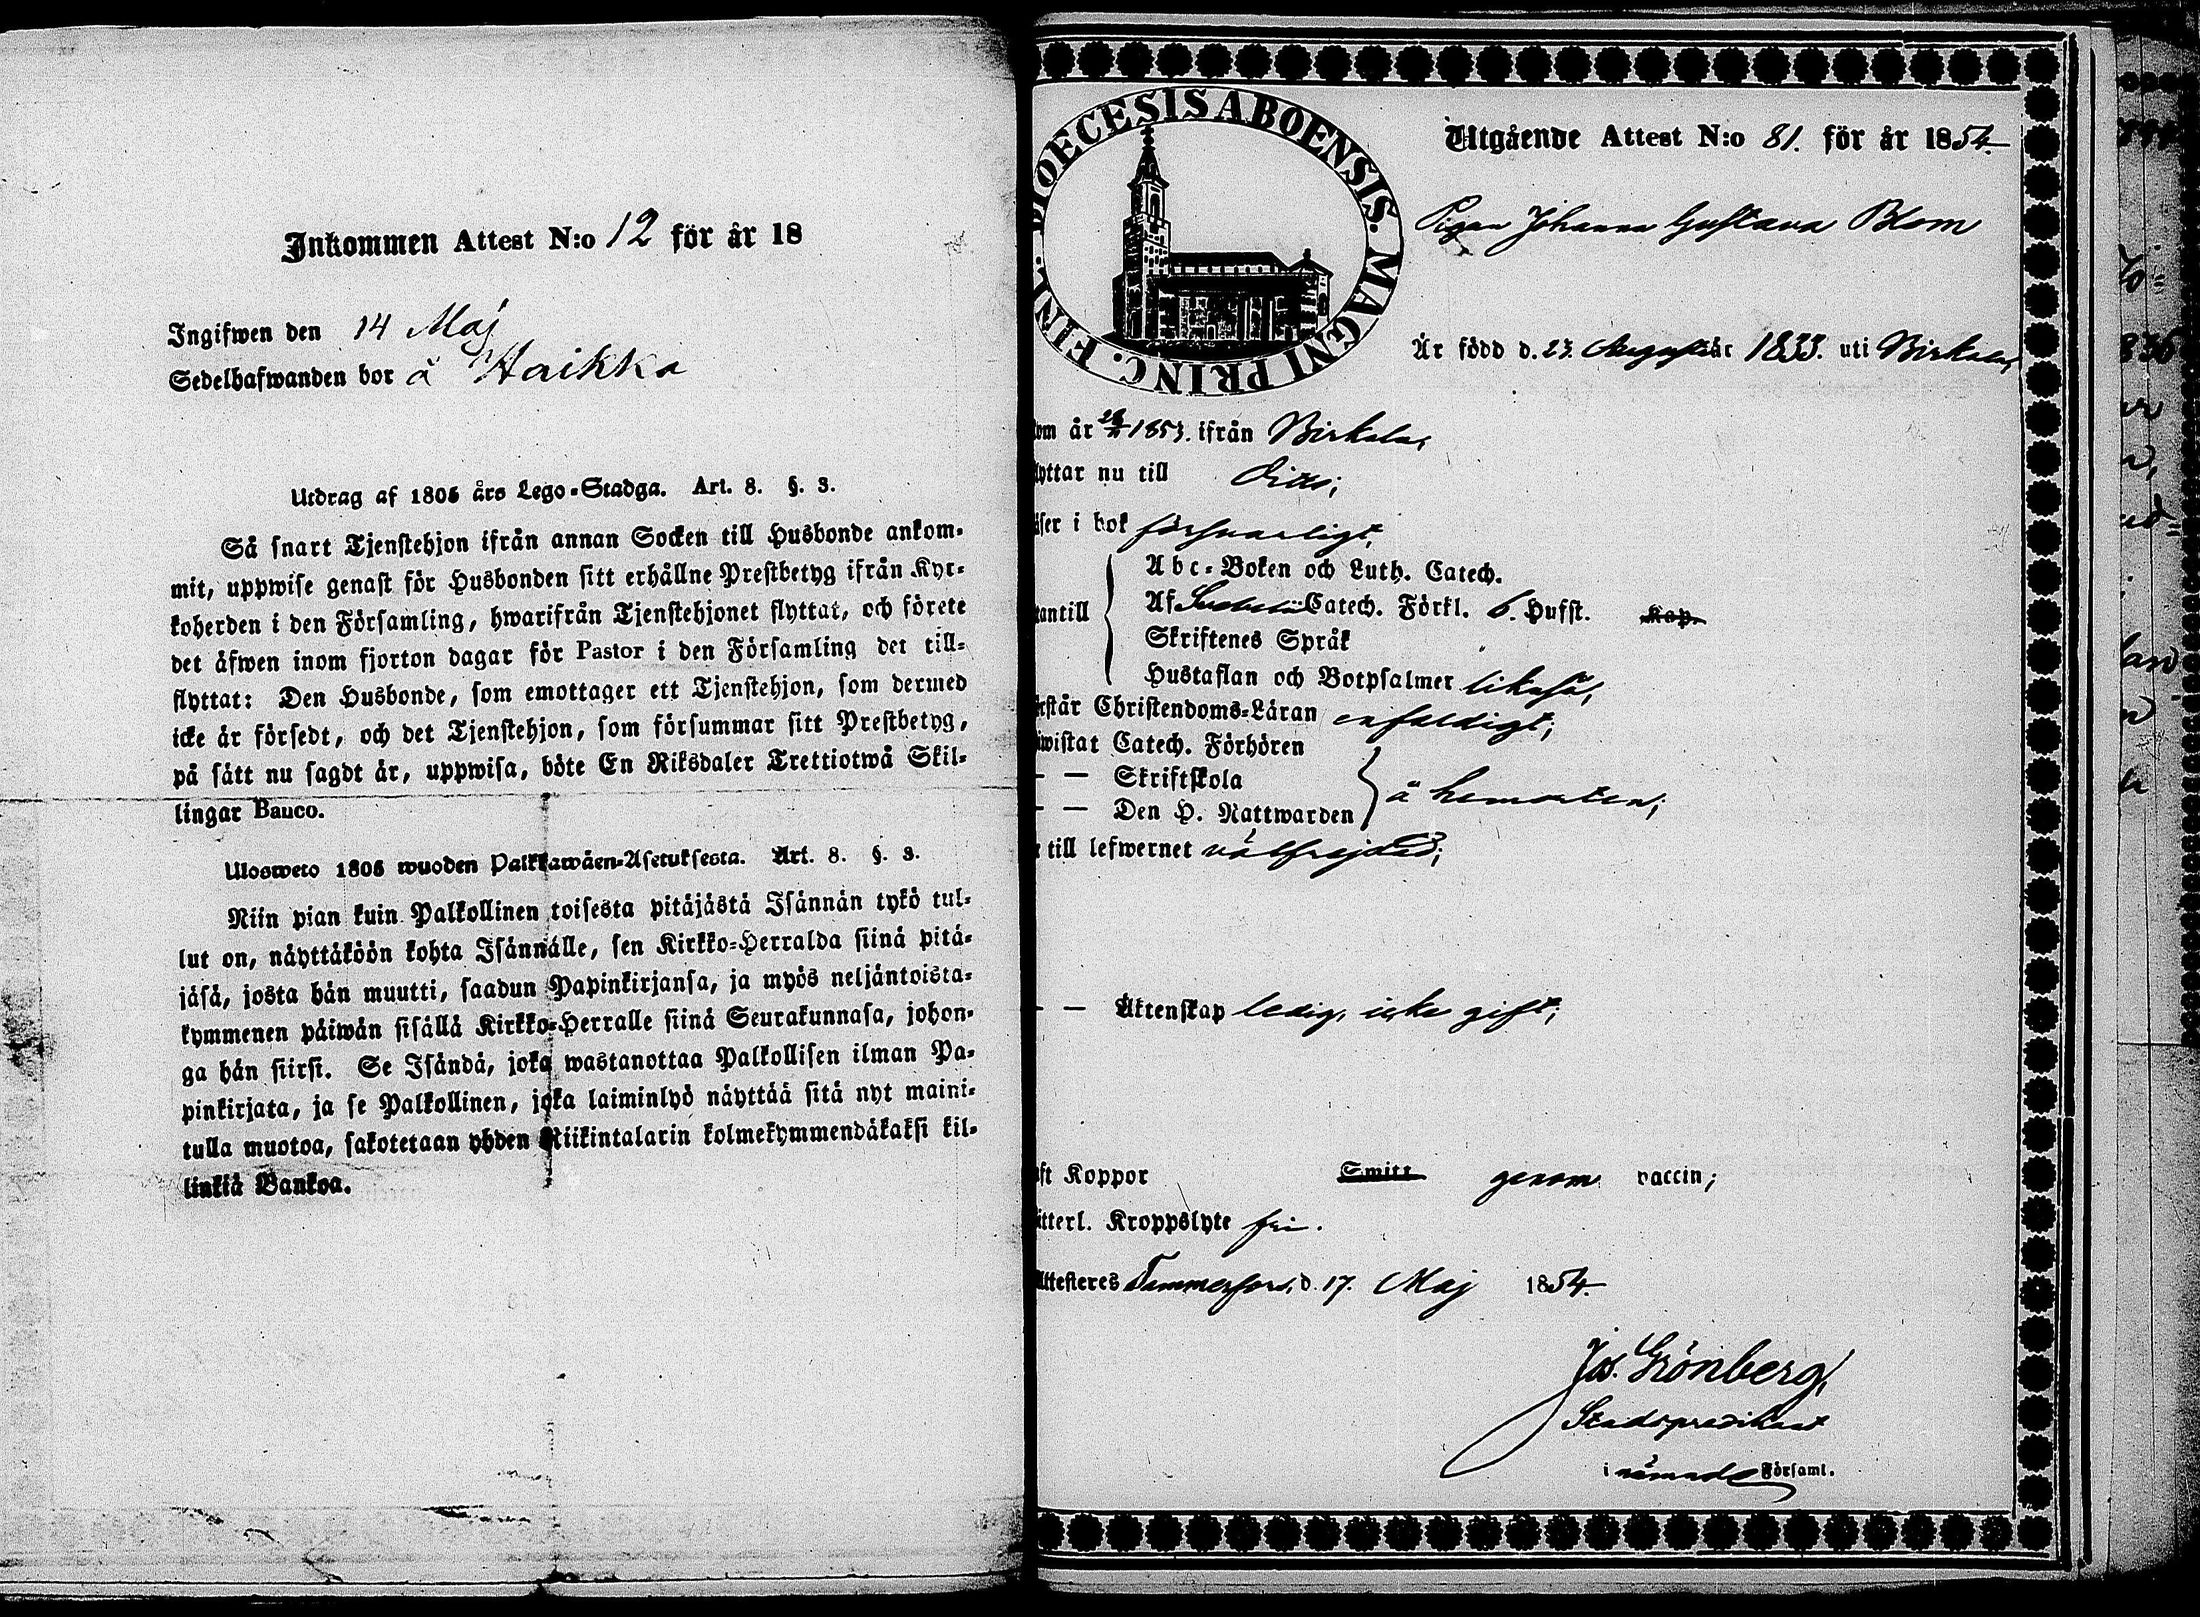 Inkommen Attest N:o 12 för år 18
Ingifwen den 14 Maj
Sedelhafwanden bor å Haikka
Utdrag af 1805 års Lego-Stadga. Art. 8. §. 3.
Så snart Tjenstehjon ifrån annan Socken till Husbonde ankom-
mit, uppwise genast för Husbonden sitt erhållne Prestbetyg ifrån Kyr-
koherden i den Församling, hwarifrån Tjenstehjonet flyttat, och förete
det äfwen inom fjorton dagar för Pastor i den Församling det till-
flyttat: Den Husbonde, som emottager ett Tjenstehjon, som dermed
icke är försedt, och det Tjenstehjon, som försummar sitt Prestbetyg,
på sätt nu sagdt är, uppwisa, böte En Riksdaler Trettiotwå Skil-
lingar Banco.
Ulosweto 1805 wuoden Palkkawäen-Asetuksesta. Art. 8. §. 3.
Niin pian kuin Palkollinen toisesta pitäjästä Isännän tykö tul-
lut on, näyttäköön kohta Isännälle, sen Kirkko-Herralda siinä pitä-
jäsä, josta hän muutti, saadun Papinkirjansa, ja myös neljäntoista-
kymmenen päiwän sisällä Kirkko-Herralle siinä Seurakunnasa, johon-
ga hän siirsi. Se Isändä, joka wastanottaa Palkollisen ilman Pa-
pinkirjata, ja se Palkollinen, joka laiminlyö näyttää sitä nyt maini-
tulla muotoa, sakotetaan yhden Riikintalarin kolmekymmendäkaksi kil-
linkiä Bankoa.
DIOECESIS ABOENSIS. MAGNI PRINC. FINL.
Utgående Attest N:o 81. för år 1854.
Pigan Johanna Gustava Blom
Är född d. 23. Augusti år 1833. uti Birkala,
om år 1853. ifrån Birkala,
yttar nu till Ditto;
äser i bok försvarligt,
Abc-Boken och Luth. Catech.
antill Af Svebelii Catech. Förkl. 6. Hufst. Kap.
Skriftenes Språk
Hustaflan och Botpsalmer likaså,
rstår Christendoms-Läran enfaldigt;
iwistat Catech. Förhören
— — Skriftskola
— — Den H. Nattwarden å hemorten;
till lefwernet välfrejdad;
— — Äktenskap ledig, icke gift;
ft Koppor Smitt genom vaccin;
itterl. Kroppslyte fri.
Attesteres Tammerfors, d. 17. Maj 1854.
Jos. Grönberg,
Stadspredikant
i nämnde Församl.